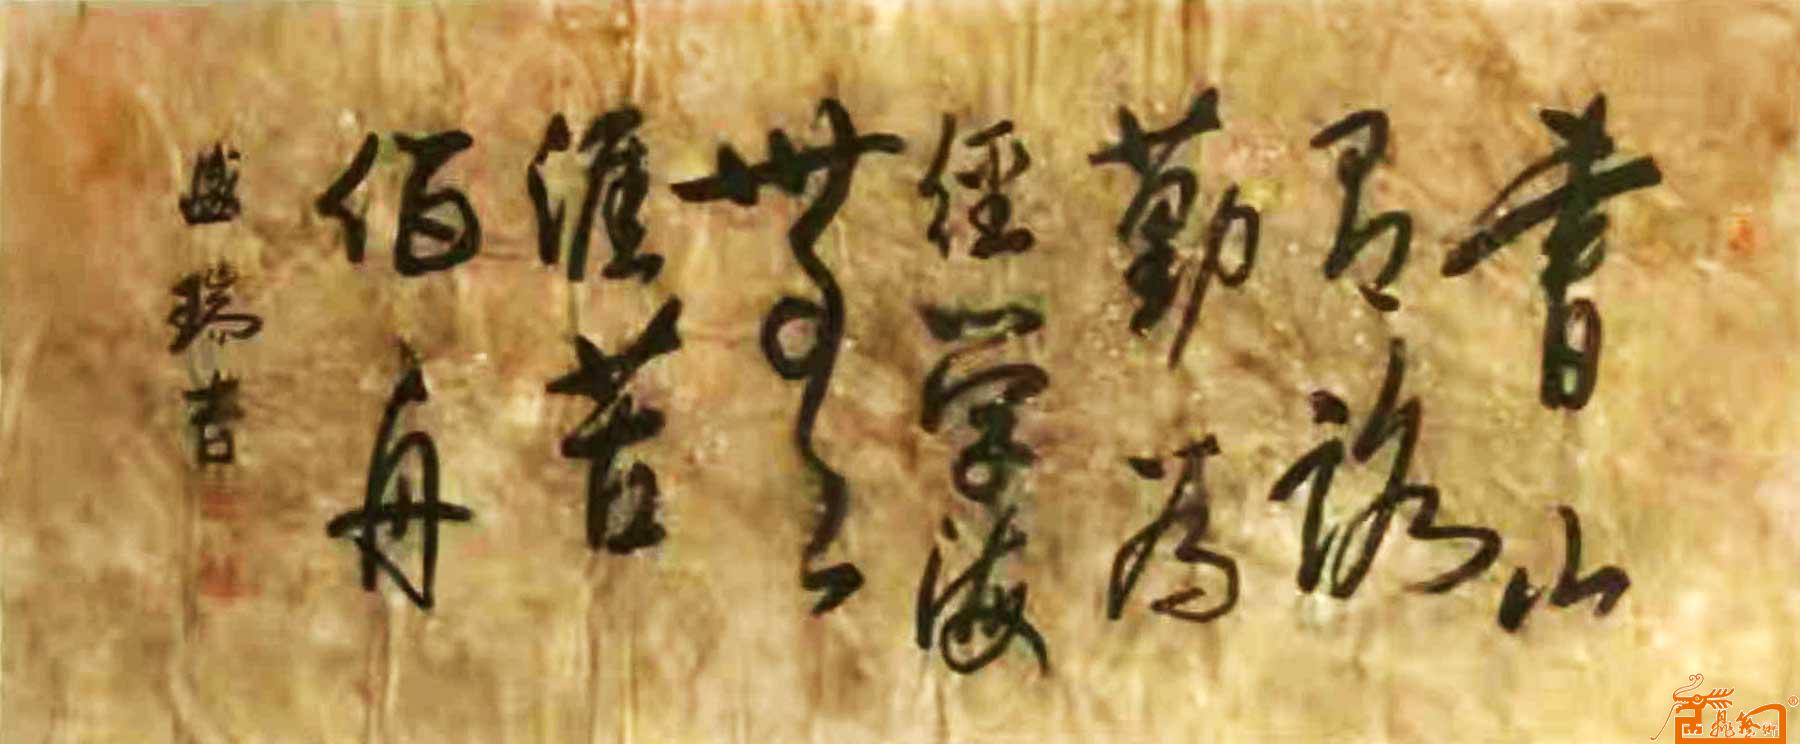 書山
有路
勤為
徑學海
無
涯苦
作舟
盛瑞